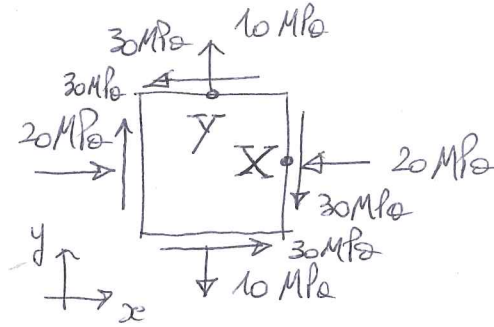 30MPa
10 MPa
30MPa
20MPa
Y
X
20 MPa
30MPa
30MPa
10 MPa
y
x